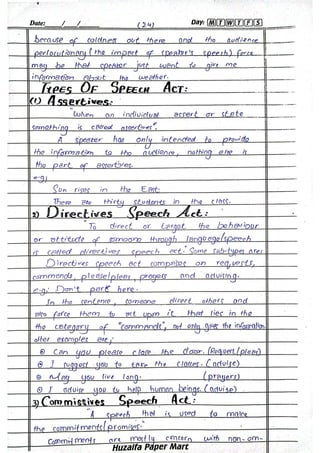 Date: / / (24) Day: M T W T F S
because of coldness out there and the audience
perlocutionary (the impact of speaker's speech) force
may be that speaker just want to give me
information about the weather.
TYPES OF SPEECH ACT:
(1) Assertives:
"When an individual assert or state
something is called assertives".
A speaker has only intended to provide
the information to the audience, nothing else is
the part of assertives.
e.g;
Sun rises in the East.
There are thirty students in the class.
2) Directives Speech Act:
"To direct or target the behaviour
or attitude of someone through language/speech
is called directives speech act." Some sub-types are:
Directives speech act comprises on requests,
commands, please/pleen, prayers and advising.
e.g; Don't park here.
In the sentence, someone direct others and
also force them to act upon it that lies in the
the category of "commands", not only gives the information
other examples are;
Can you please close the door. (Request/pleen)
I suggest you to take the classes. (advise)
May you live long. (prayers)
I advise you to help human beings. (advise)
3) Commistives Speech Act:
"A speech that is used to make
the commitments/promises"
Commitments are mostly concern with non-em-
Huzaifa Paper Mart